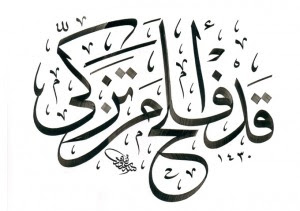 قد أفلح من تزكى
١٤٣٠